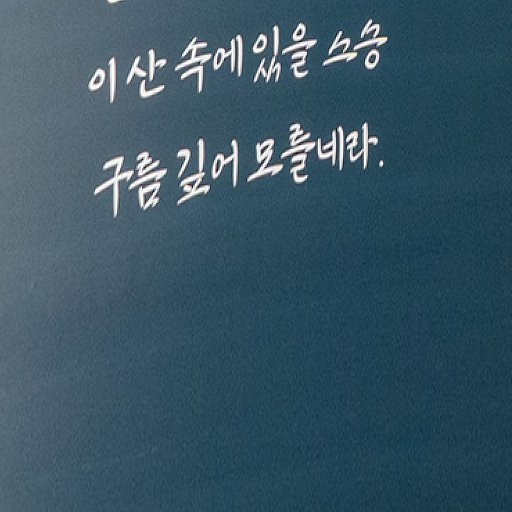 이 산 속에 있을 스승
구름 깊어 모를네라.